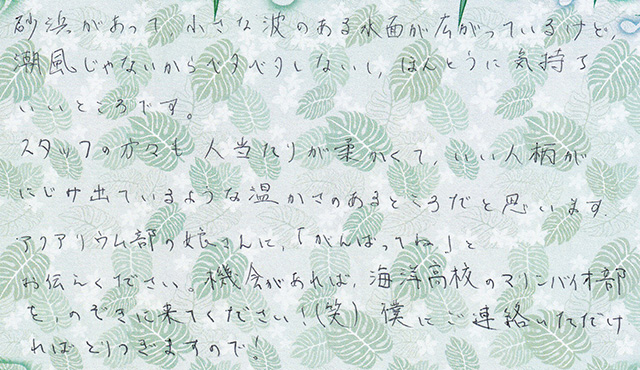 砂浜があって、小さな波のある水面が広がっているけど、
潮風じゃないからベタベタしないし、ほんとうに気持ち
いいところです。
スタッフの方々も人当たりが柔かくて、いい人柄が
にじみ出ているような温かさのあるところだと思います。
アクアリウム部の娘さんに、「がんばってね」と
お伝えください。機会があれば、海洋高校のマリンバイオ部
を、のぞきに来てください！(笑) 僕にご連絡いただけ
ればとりつぎますので！